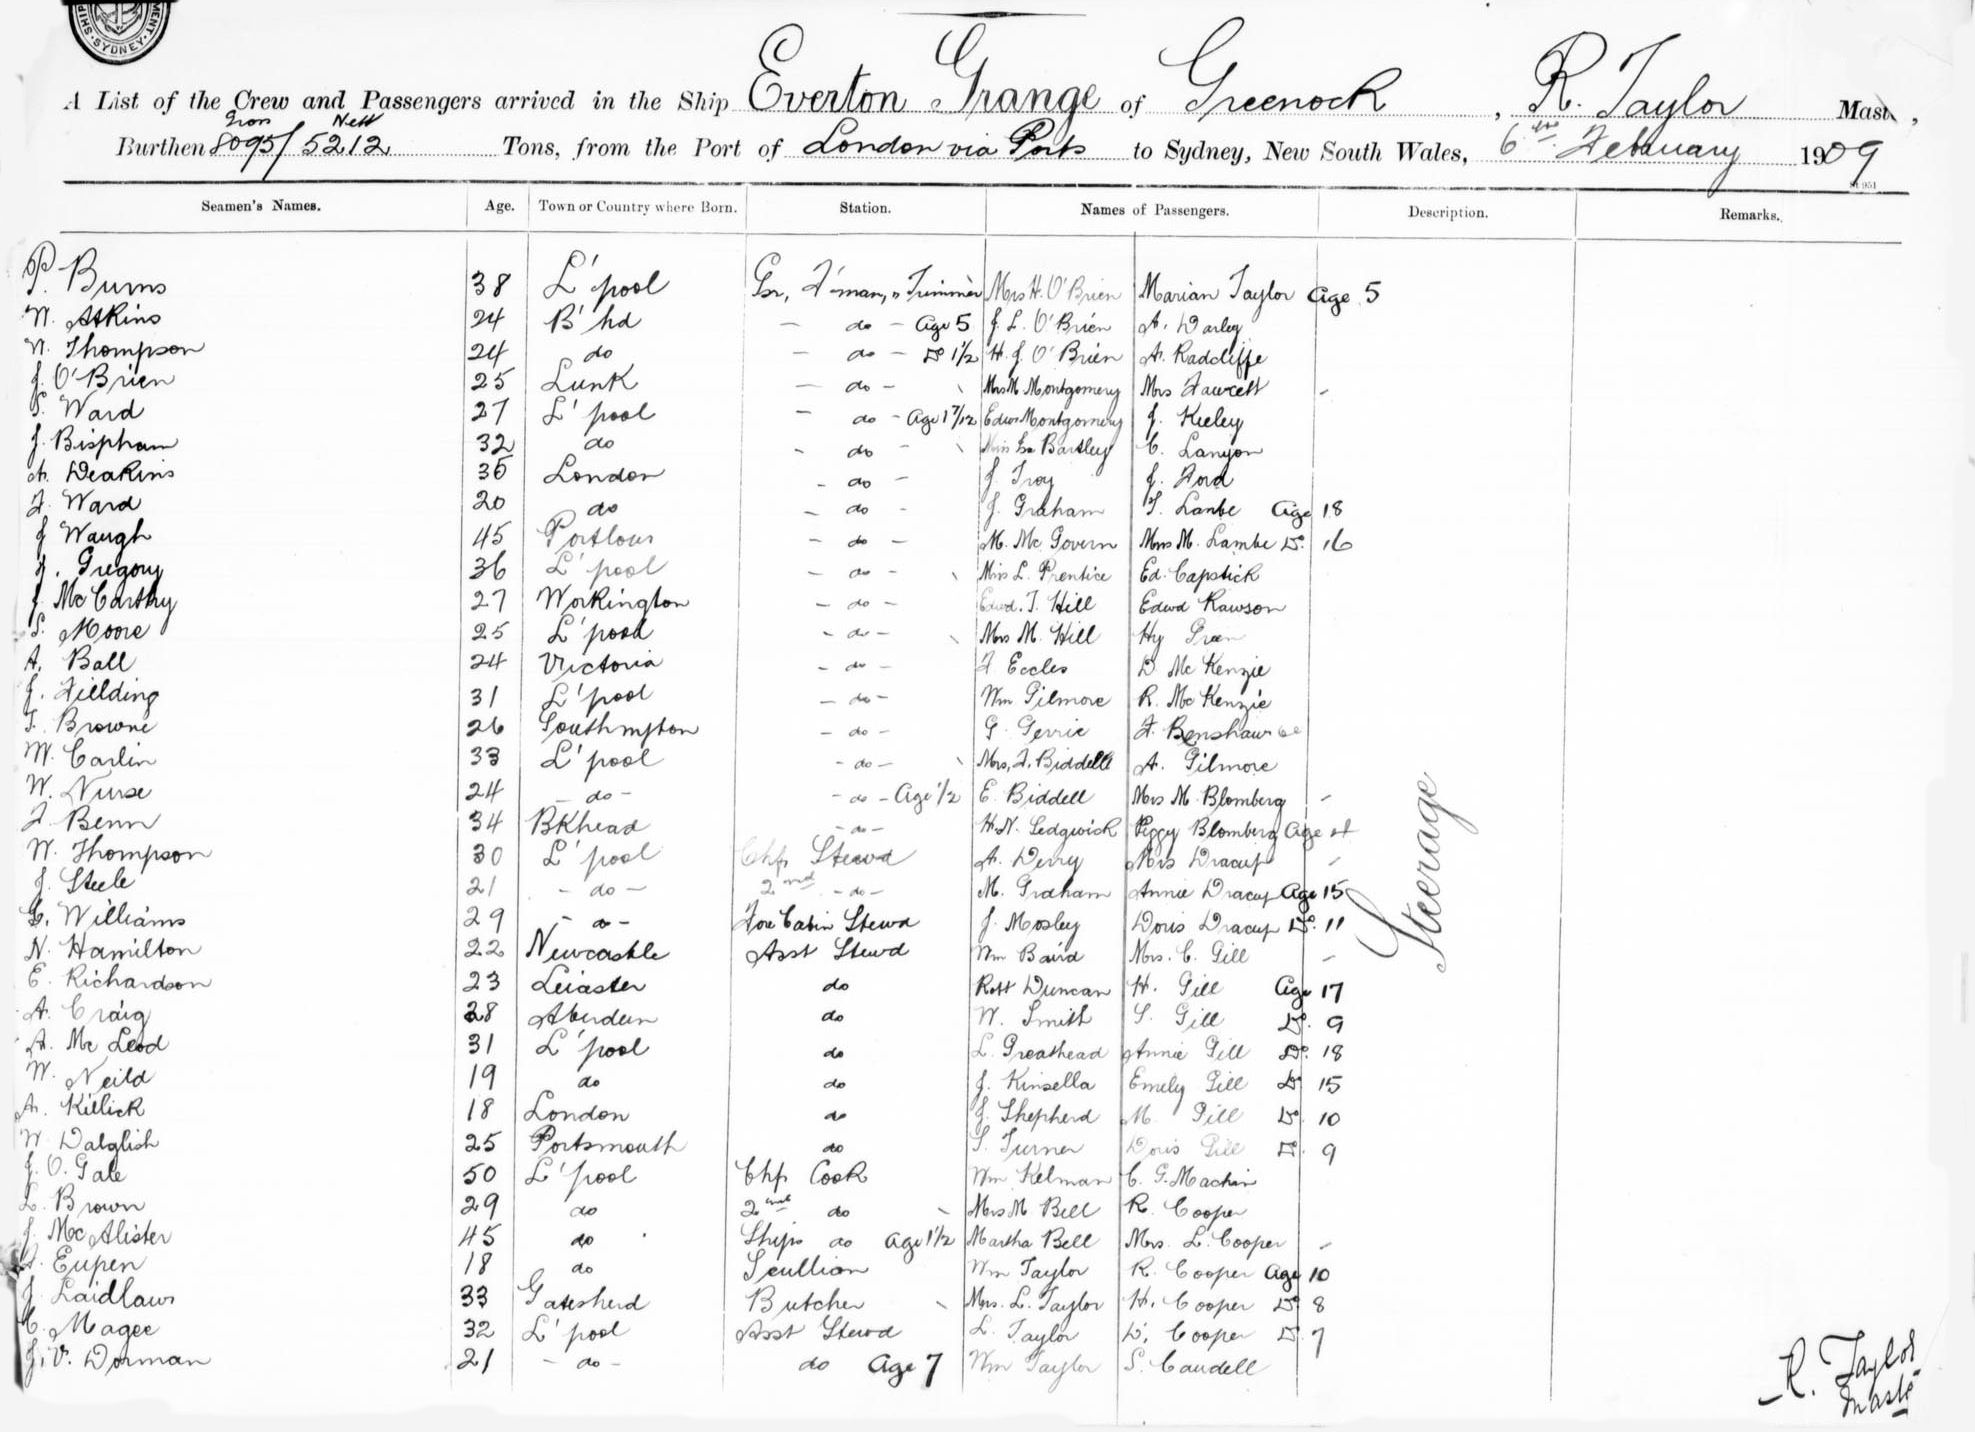 MENT. SHIP SYDNEY
A List of the Crew and Passengers arrived in the Ship Everton Grange of Greenock, R. Taylor Mast,
Gross Nett
Burthen 8095/5212 Tons, from the Port of London via Ports to Sydney, New South Wales, 6th February 1909
Seamen's Names. Age. Town or Country where Born. Station. Names of Passengers. Description. Remarks.
P. Burns 38 L'pool Gr, F'man, " Trimmer Mrs H. O'Brien Marian Taylor Age 5
W. Atkins 24 B'hd - do - Age 5 J. L. O'Brien A. Darley
W. Thompson 24 do - do - Do 1½ H. J. O'Brien A. Radcliffe
J. O'Brien 25 Lunk - do - Mrs M Montgomery Mrs Fawcett -
S. Ward 27 L'pool - do - Age 1 7/12 Edw Montgomery J. Keeley
J. Bispham 32 do - do - Bartley C. Lanyon
A. Deakins 35 London - do - J. Troy J. Ford
F. Ward 20 do - do - J. Graham T. Lambe Age 18
J Waugh 45 - do - M. Mc Govern Mrs M. Lambe Do. 16
J. Gregory 36 L'pool - do - Miss L. Prentice Ed. Capstick
J. McCarthy 27 Workington - do - Edwd. T. Hill Edwd Rawson
S. Moore 25 L'pool - do - Mrs M. Hill Hy Green
A. Ball 24 Victoria - do - F. Eccles D McKenzie
J. Fielding 31 L'pool - do - Wm Gilmore R. McKenzie
T. Browne 26 Southmpton - do - G. Gerrie F. Benshaw
W. Carlin 33 L'pool - do - Mrs, F. Biddell A. Gilmore
W. Nurse 24 - do - - do - Age ½ E. Biddell Mrs M. Blomberg -
F. Benn 34 BKhead - do - H. N. Sedgwick Peggy Blomberg Age 4
W. Thompson 30 L'pool Chf Stewd A. Derry Mrs Dracup -
J. Steele 21 - do - 2nd - do - M. Graham Annie Dracup Age 15
G. Williams 29 - do - Fore Cabin Stewd J. Mosley Doris Dracup Do. 11
N. Hamilton 22 Newcastle Asst Stewd Wm Baird Mrs. C. Gill -
E. Richardson 23 Leiaster do Robt Duncan H. Gill Age 17
A. Craig 28 Aberdeen do W. Smith S. Gill Do. 9
A. McLeod 31 L'pool do L. Greathead Annie Gill Do. 18
W. Neild 19 do do J. Kinsella Emely Gill Do 15
A. Killick 18 London do J. Shepherd M. Gill Do. 10
W Dalglish 25 Portsmouth do S. Turner Doris Gill Do. 9
J. O. Gale 50 L'pool Chf Cook Wm Kelman C. G. Machin
L. Brown 29 do 2nd do Mrs M Bell R. Cooper
J. McAlister 45 do Ships do Age 1½ Martha Bell Mrs. L. Cooper -
J. Eupen 18 do Scullion Wm Taylor R. Cooper Age 10
J. Laidlaw 33 Gateshead Butcher Mrs. L. Taylor H. Cooper Do 8
C. Magee 32 L'pool Asst Stewd L. Taylor D. Cooper Do. 7
J. V. Dorman 21 - do - do Age 7 Wm Taylor S. Caudell
Steerage
R. Taylor
Mastr